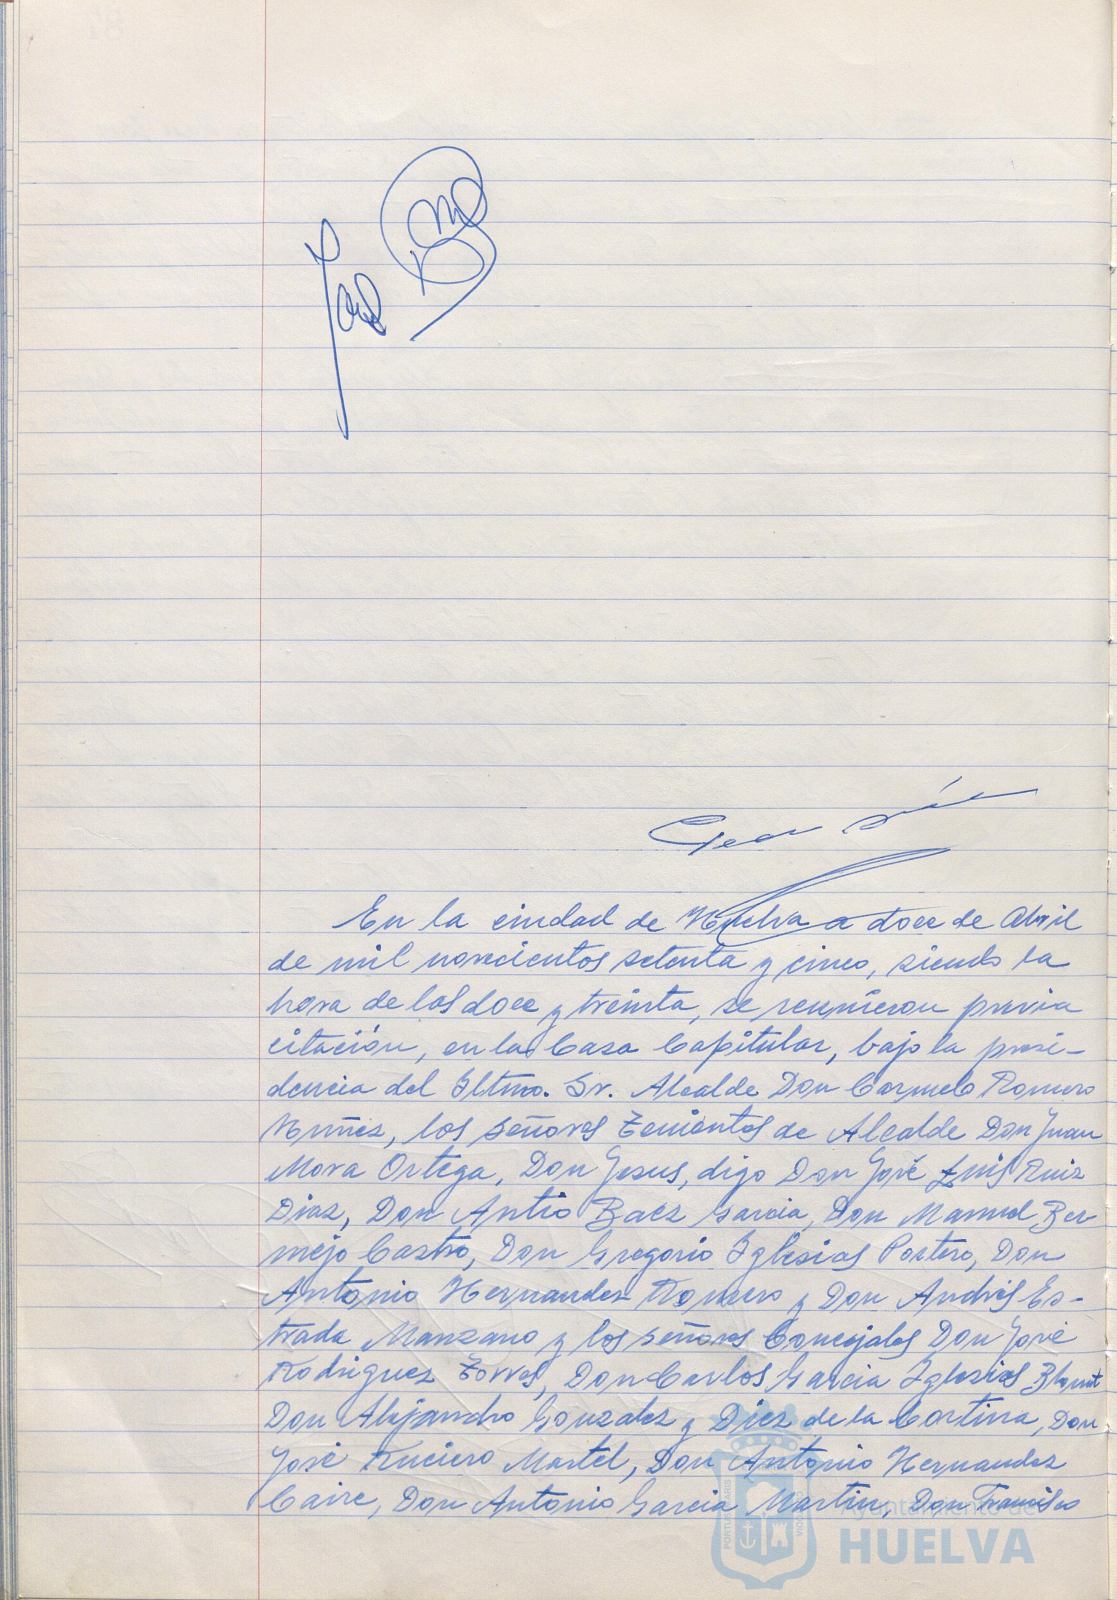 José
En la ciudad de Huelva a doce de Abril
de mil novecientos setenta y cinco, siendo la
hora de las doce y treinta, se reunieron previa
citación, en la Casa Capitular, bajo la presi-
dencia del Iltmo. Sr. Alcalde Don Carmelo Romero
Nuñez, los señores Tenientes de Alcalde Don Juan
Mora Ortega, Don Jesus, digo Don José Luis Ruiz
Diaz, Don Antio Baez Garcia, Don Manuel Ber-
mejo Castro, Don Gregorio Iglesias Portero, Don
Antonio Hernandez Romero y Don Andrés Es-
trada Manzano y los señores Concejales Don José
Rodriguez Torres, Don Carlos Garcia Iglesias
Don Alejandro Gonzalez y Diez de la Cortina, Don
José Ruciero Martel, Don Antonio Hernandez
Caire, Don Antonio Garcia Martin, Don Francisco
Ayuntamiento de
HUELVA